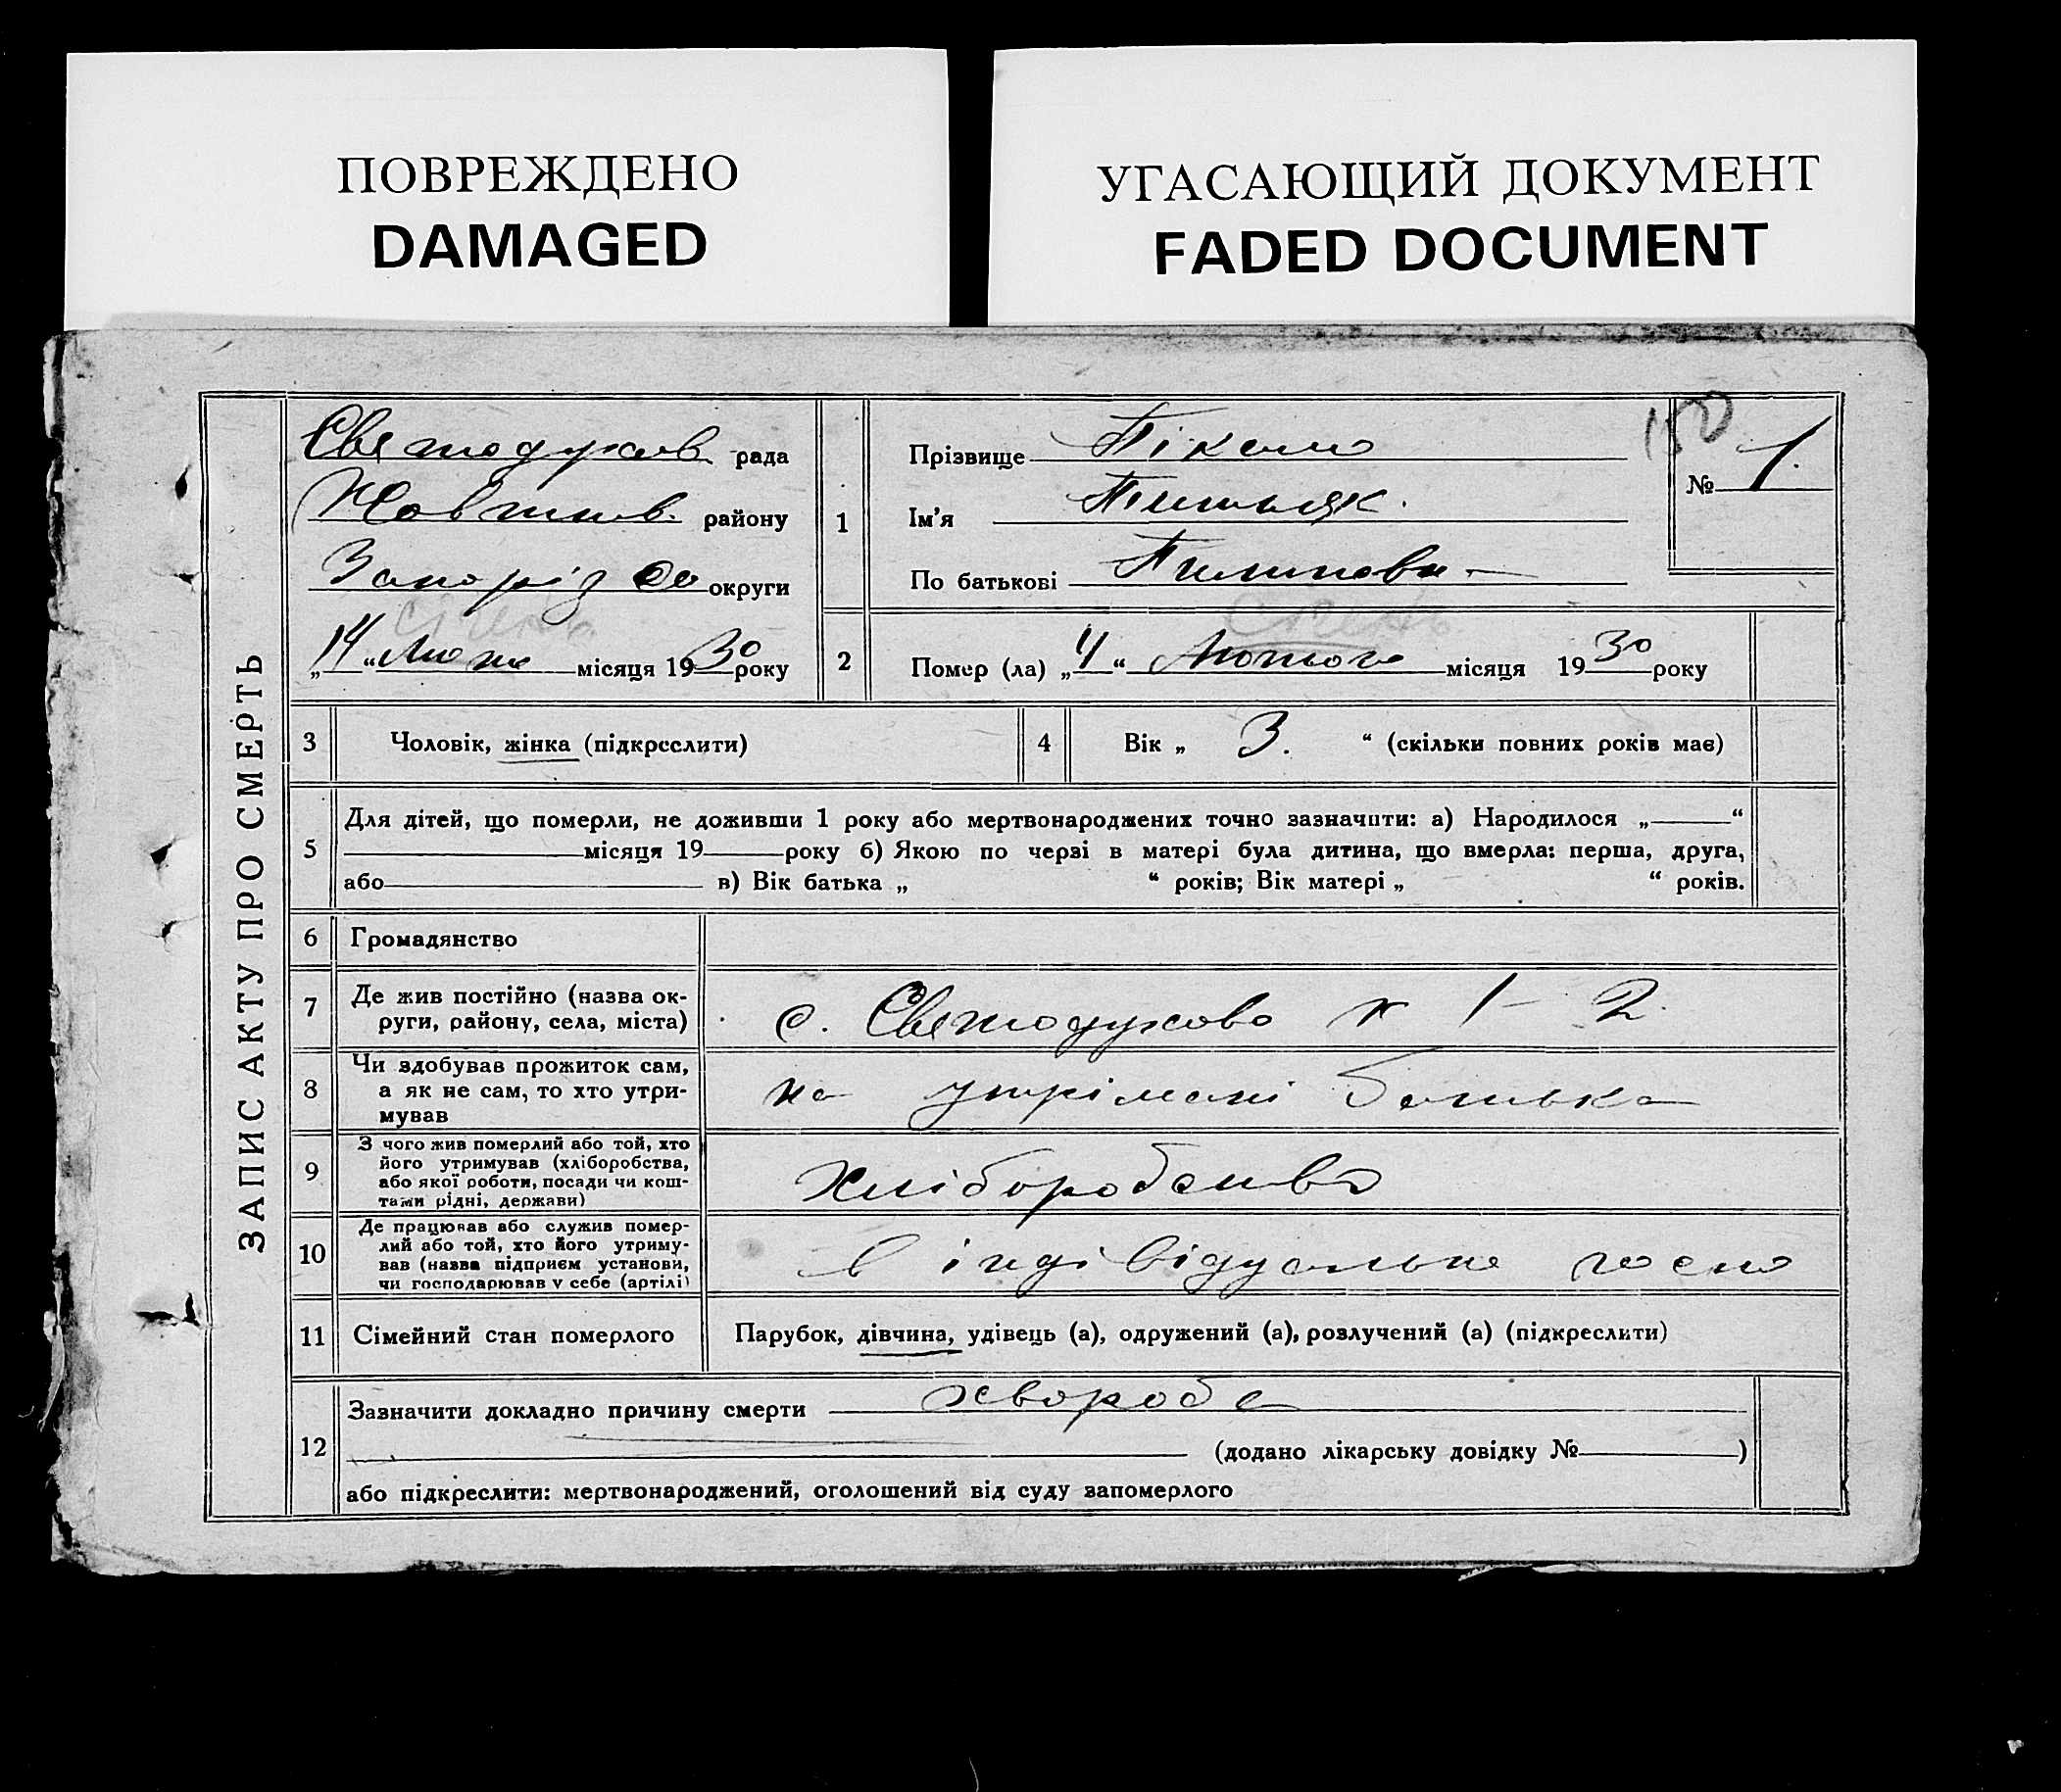 ПОВРЕЖДЕНО
DAMAGED
УГАСАЮЩИЙ ДОКУМЕНТ
FADED DOCUMENT
ЗАПИС АКТУ ПРО СМЕРТЬ
Святодухов рада
району
Запоріз округи
січень
„14“ місяця 1930 року
1
Прізвище
Ім'я
По батькові
150
№ 1.
2
січень
Помер (ла) „4“ Лютого місяця 1930 року
3 Чоловік, жінка (підкреслити)
4 Вік „ 3. “ (скільки повних років має)
5 Для дітей, що померли, не доживши 1 року або мертвонароджених точно зазначити: а) Народилося „ “
місяця 19 року б) Якою по черзі в матері була дитина, що вмерла: перша, друга,
або в) Вік батька „ “ років; Вік матері „ “ років.
6 Громадянство
7 Де жив постійно (назва ок-
руги, району, села, міста)
с. Святодухово 1 – 2
8 Чи здобував прожиток сам,
а як не сам, то хто утри-
мував
на утрімані батька
9 З чого жив померлий або той, хто
його утримував (хліборобства,
або якої роботи, посади чи кош-
тами рідні, держави)
Хліборобство
10 Де працював або служив помер-
лий або той, хто його утриму-
вав (назва підприєм установи,
чи господарював у себе (артілі)
в індівідуальне
11 Сімейний стан померлого
Парубок, дівчина, удівець (а), одружений (а), розлучений (а) (підкреслити)
12 Зазначити докладно причину смерти хвороба
(додано лікарську довідку № )
або підкреслити: мертвонароджений, оголошений від суду запомерлого